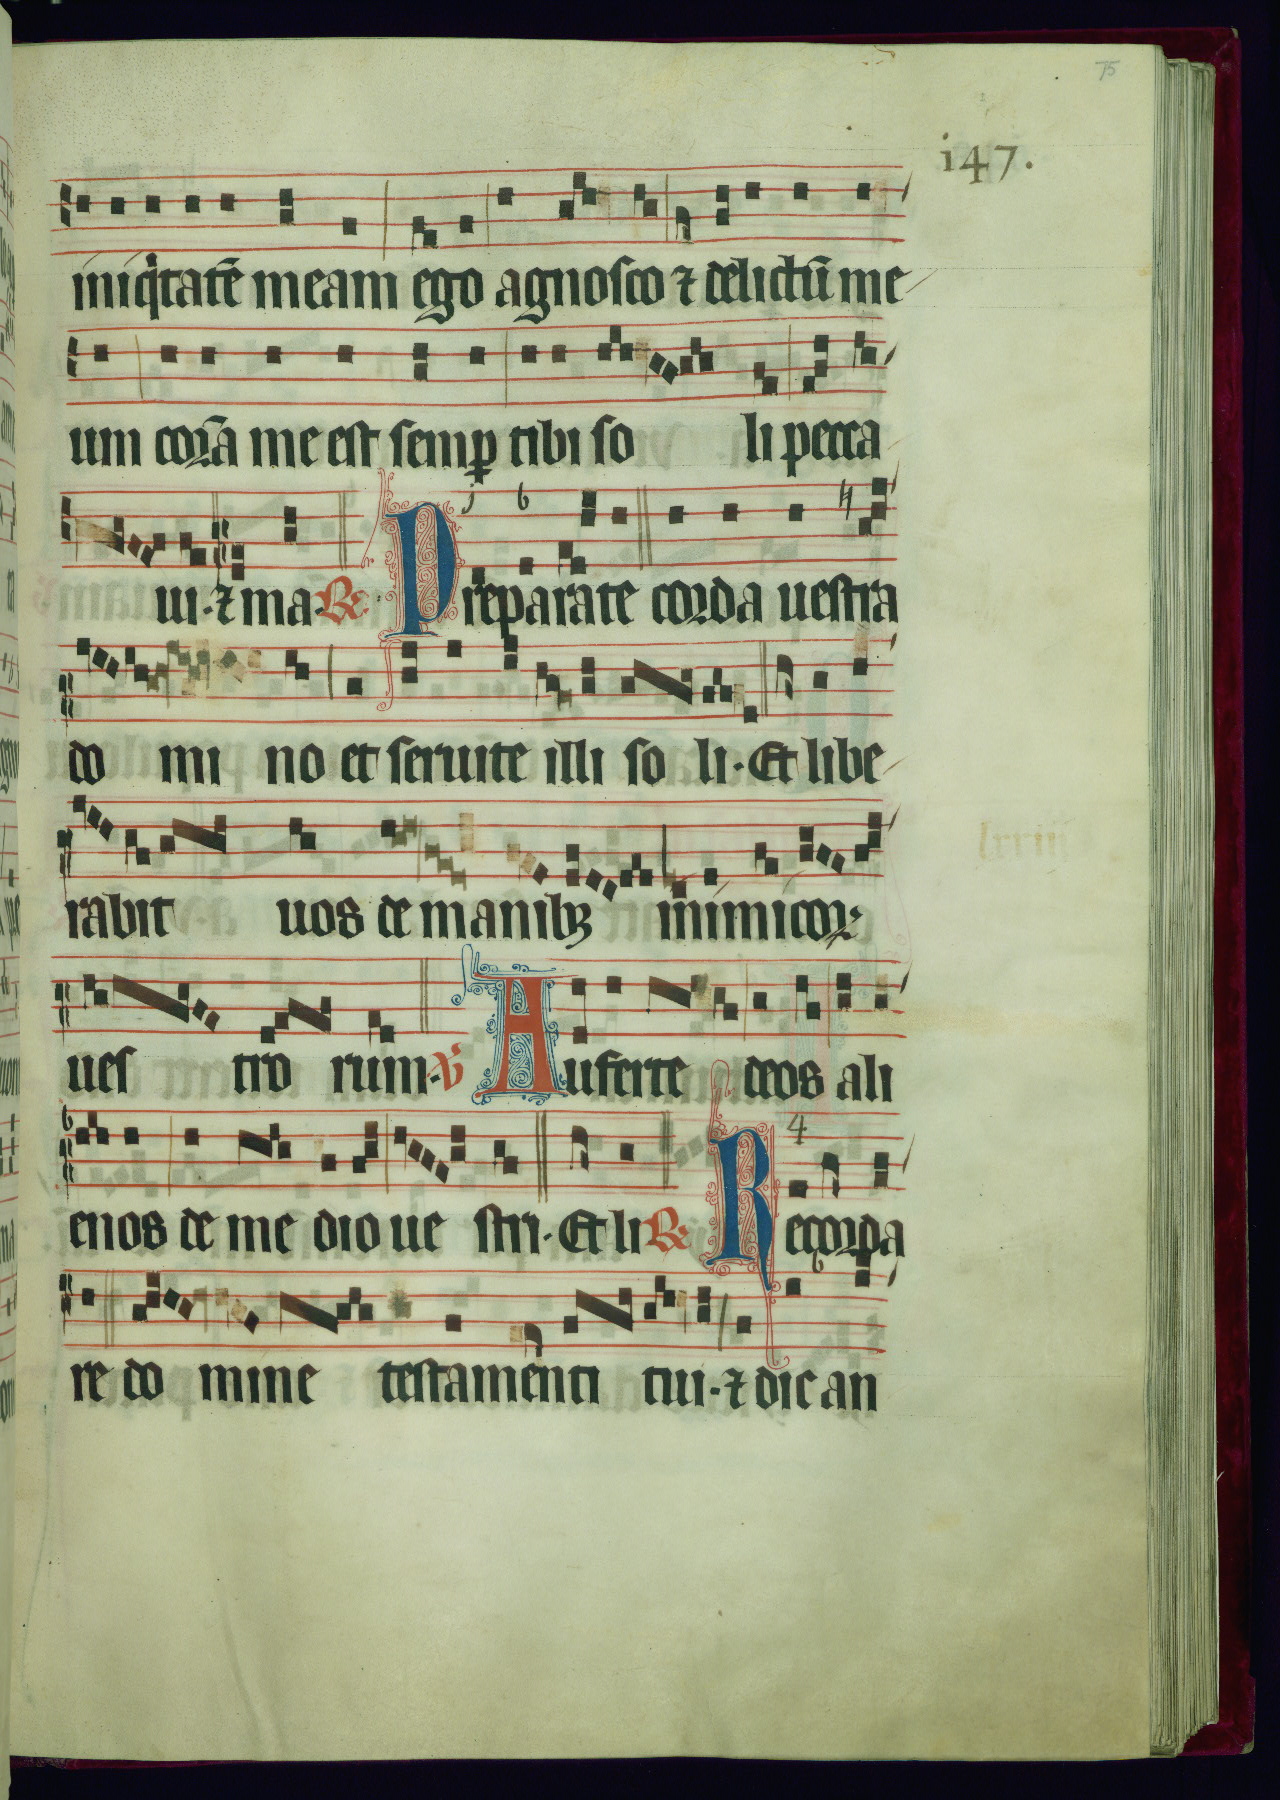 75
i47.
iniq̇tatē meam ego agnosco ⁊ delictū me
um corā me est semꝑ tibi so li pecca
ui · ⁊ ma · ℟ Preparate corda uestra
do mi no et seruite illi so li · Et libe
rabit uos de manibꝫ inimicoꝝ
ues tro rum · ℣ Auferte deos ali
enos de me dio ue stri · Et li ℟ Recorda
re do mine testamenti tui · ⁊ dic an